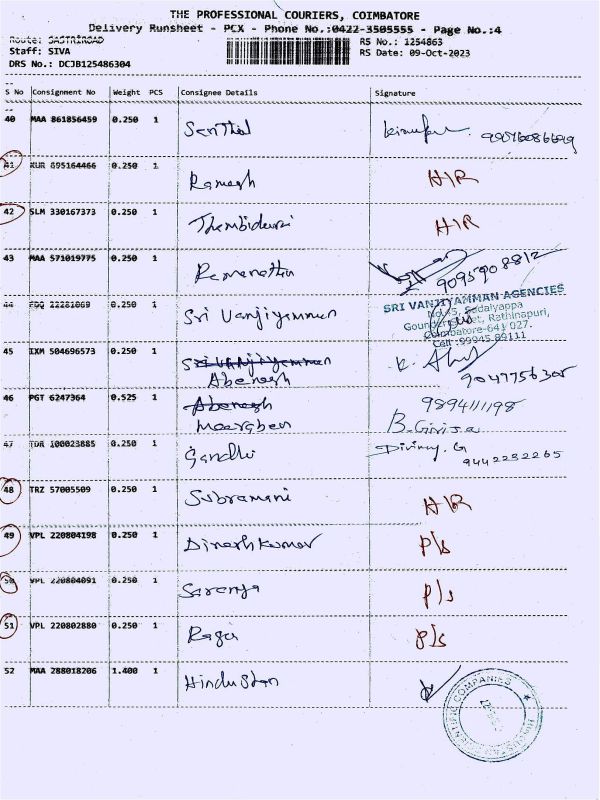 THE PROFESSIONAL COURIERS, COIMBATORE
Delivery Runsheet - PCX - Phone No.:0422-3505555 - Page No.:4
Route: SASTRIROAD
Staff: SIVA
DRS No.: DCJB125486304
RS No.: 1254863
RS Date: 09-Oct-2023
S No Consignment No Weight PCS Consignee Details Signature
40 MAA 861856459 0.250 1 Senthil
41 KUR 895164466 0.250 1 Ramesh H/R
42 SLM 330167373 0.250 1 Thambidurai H/R
43 MAA 571019775 0.250 1 Ramanathan 9095908812
44 22281069 0.250 1 Sri Vanjiyamman
SRI VANJIYAMMAN AGENCIES
Gounder Street, Rathinapuri,
Coimbatore-641 027.
Cell :99945 89111
45 IXM 504696573 0.250 1 Sri Vanjiyamman
Abenesh 9047756305
46 PGT 6247364 0.525 1 Abenesh 9894111198
Meerghen B. Girija
47 TDR 100023885 0.250 1 Gandhi Divinay. G 9442232265
48 TRZ 57005509 0.250 1 Subramani H/R
49 VPL 220804198 0.250 1 Dineshkumar P/s
50 VPL 220804091 0.250 1 Saranya P/s
51 VPL 220802880 0.250 1 Raja P/s
52 MAA 288018206 1.400 1 Hindustan